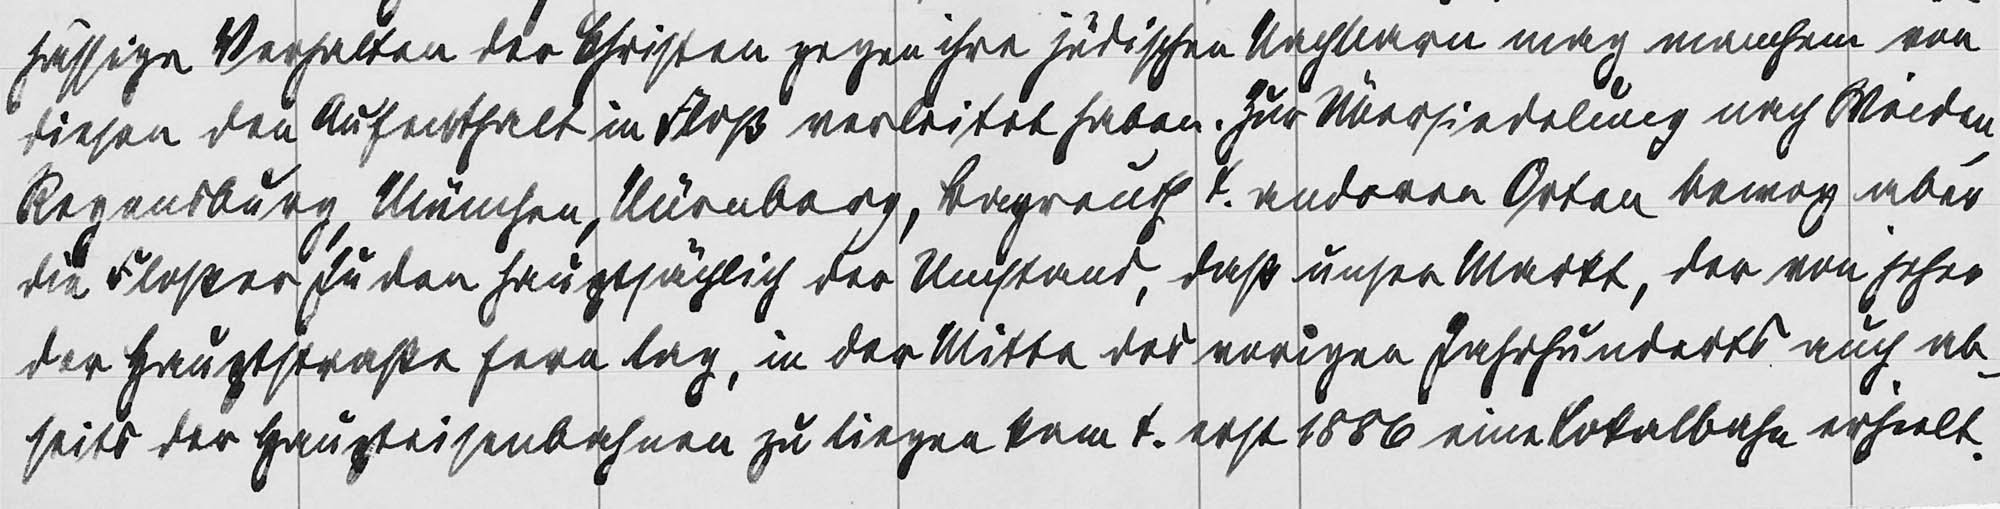 hässige Verhalten der Christen gegen ihre jüdischen Nachbarn mag manchem von
diesen den Aufenthalt in Floß verleitet haben. Zur Übersiedelung nach Weiden,
Regensburg, München, Nürnberg, Bayreuth u. anderen Orten bewog aber
die Flosser Juden hauptsächlich der Umstand, daß unser Markt, der von jeher
der Hauptstraße fern lag, in der Mitte des vorigen Jahrhunderts auch ab-
seits der Haupteisenbahnen zu liegen kam u. erst 1886 eine Lokalbahn erhielt.